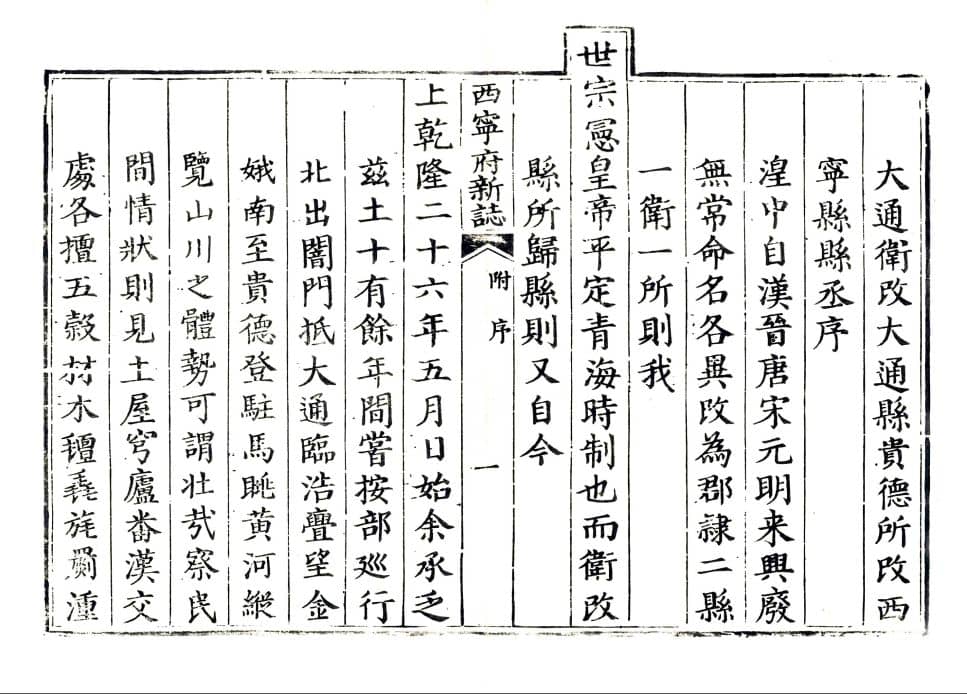 大通衛改大通縣貴德所改西
寧縣縣丞序
湟中自漢晉唐宋元明来興廢
無常命名各異改為郡隸二縣
一衛一所則我
世宗憲皇帝平定青海時制也而衛改
縣所歸縣則又自今
西寧府新誌
附序
一
上乾隆二十六年五月日始余承乏
兹土十有餘年間嘗按部廵行
北出闇門抵大通臨浩亹望金
娥南至貴德登駐馬眺黄河縱
覽山川之體勢可謂壮哉察民
間情狀則見土屋穹廬番漢交
處各擅五榖材木氊毳旄罽湩